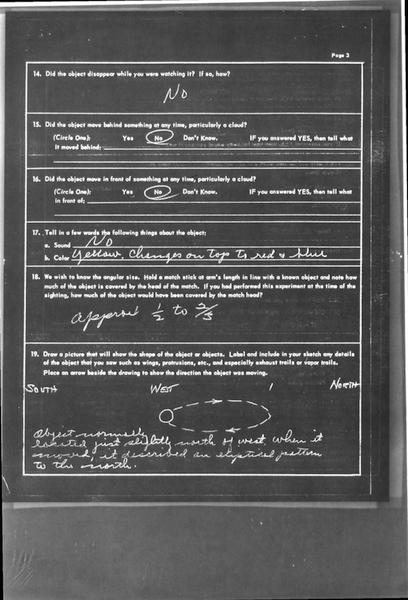 Page 3
14. Did the object disappear while you were watching it? If so, how?
No
15. Did the object move behind something at any time, particularly a cloud?
(Circle One): Yes No Don't Know. IF you answered YES, then tell what
it moved behind:
16. Did the object move in front of something at any time, particularly a cloud?
(Circle One): Yes No Don't Know. IF you answered YES, then tell what
in front of:
17. Tell in a few words the following things about the object:
a. Sound NO
b. Color Yellow, Changes on top to red & blue
18. We wish to know the angular size. Hold a match stick at arm's length in line with a known object and note how
much of the object is covered by the head of the match. If you had performed this experiment at the time of the
sighting, how much of the object would have been covered by the match head?
1/2 to 2/3
19. Draw a picture that will show the shape of the object or objects. Label and include in your sketch any details
of the object that you saw such as wings, protrusions, etc., and especially exhaust trails or vapor trails.
Place an arrow beside the drawing to show the direction the object was moving.
SOUTH WEST NORTH
Object normally
located just slightly north of west, when it
moved, it described an eliptical pattern
to the north.